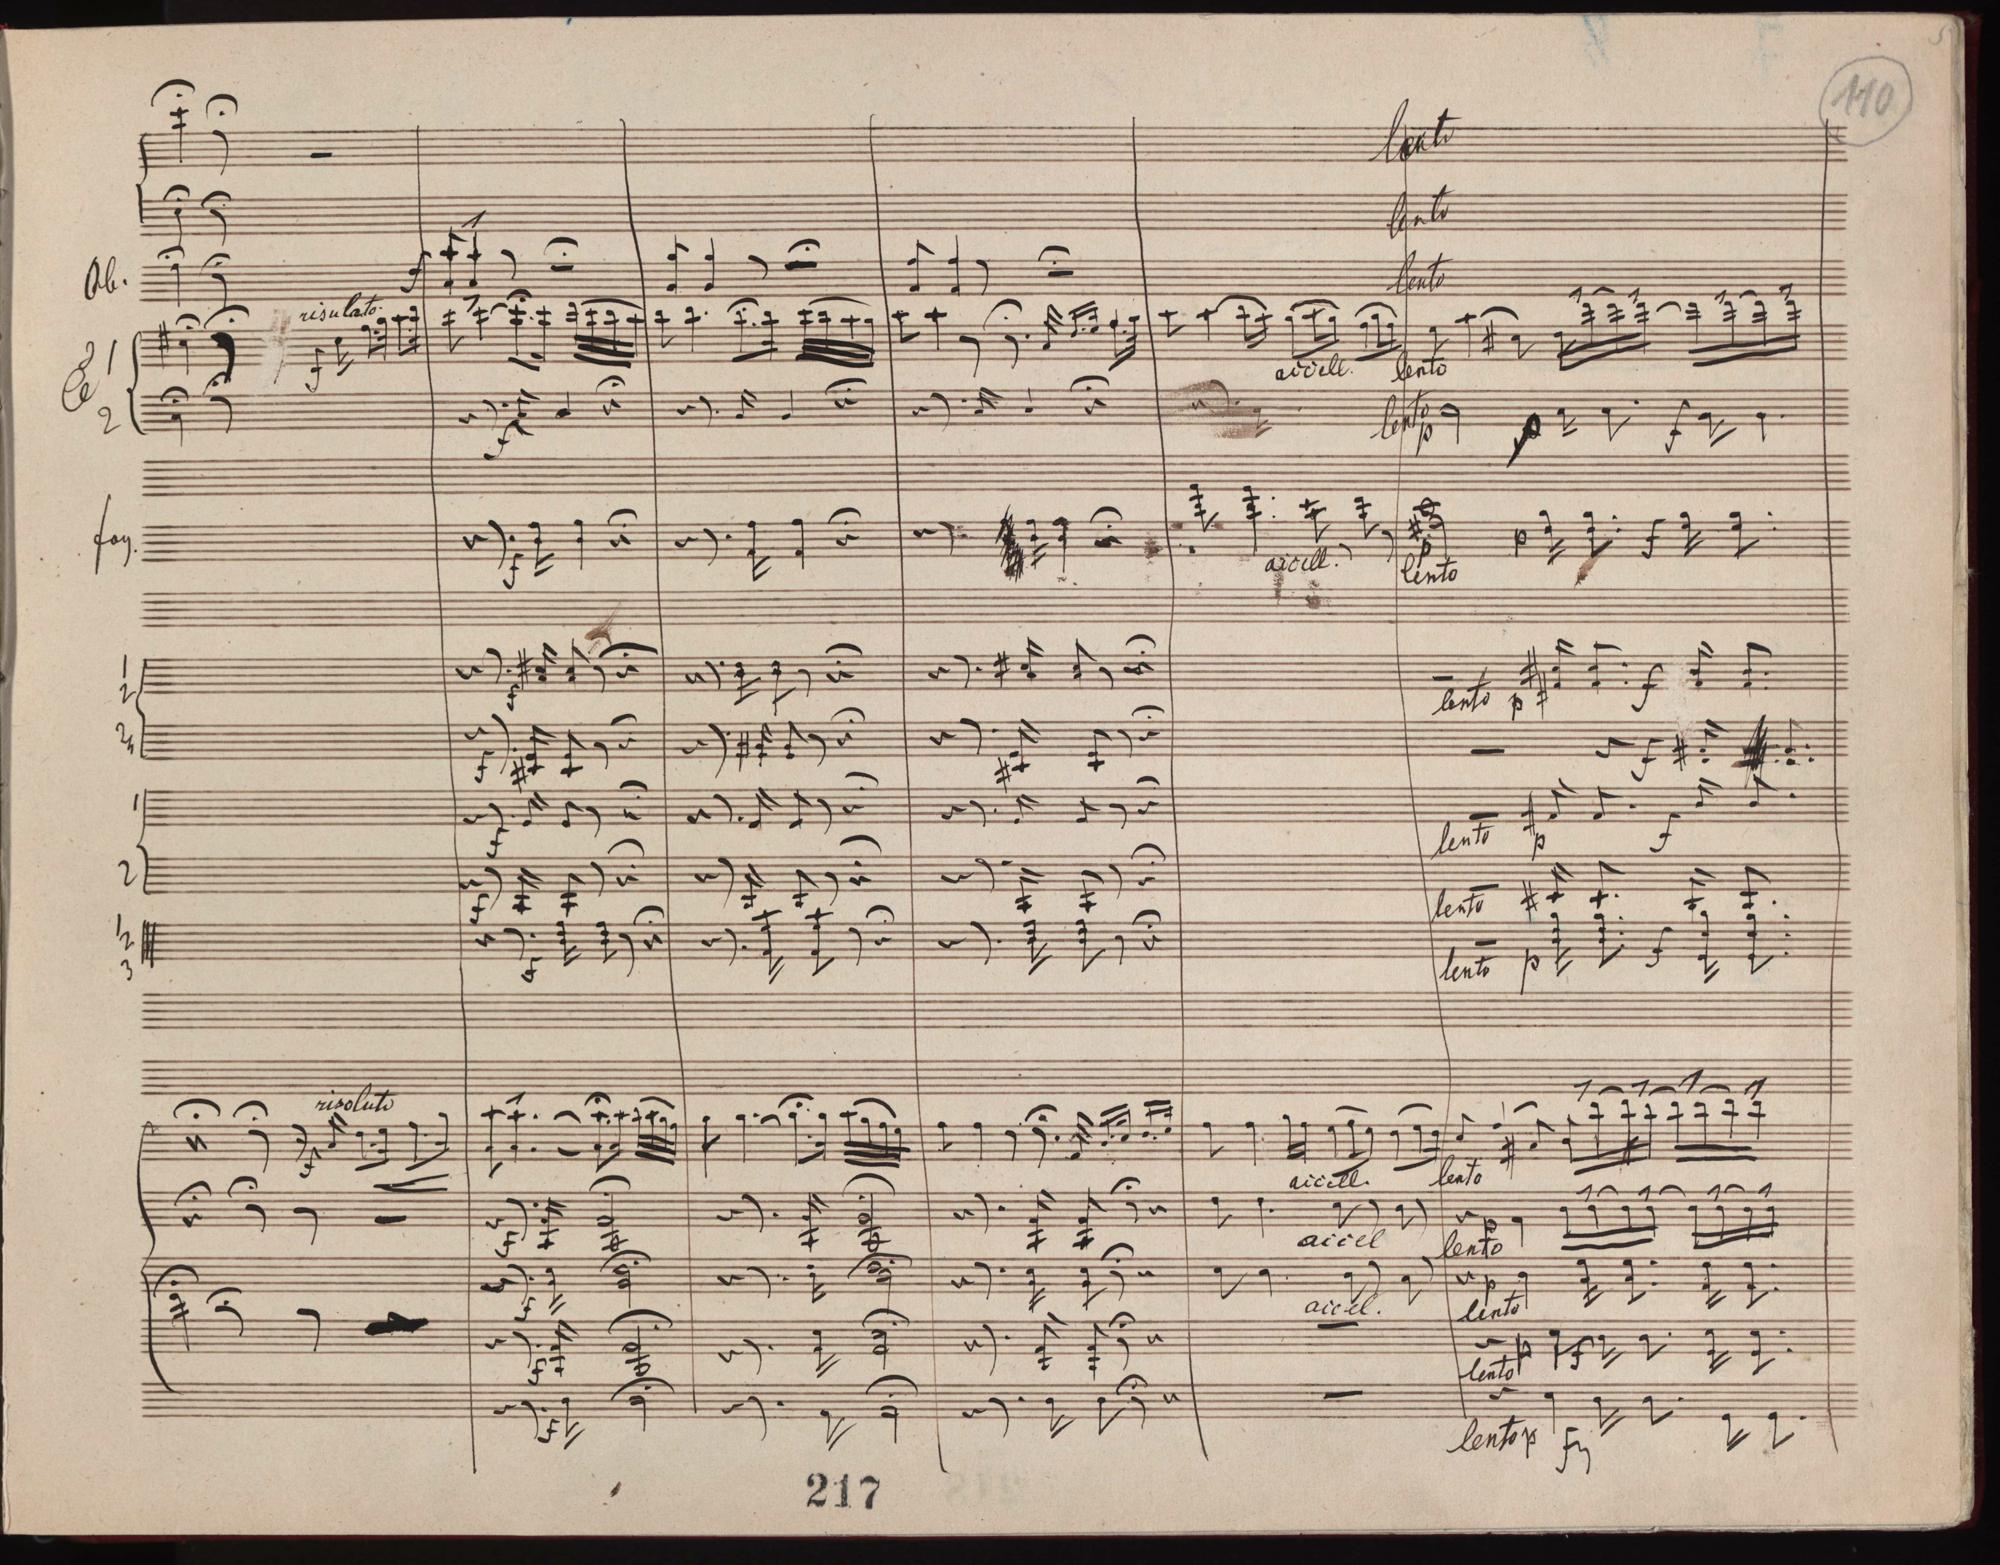 110
lento
lento
Ob. f lento
risulato.
1 f accell. lento
2 f lento p p f
fag. f f accell. lento p p f
1
2 f lento p f
3
4 f f
1 f lento p f
2 f lento
1
2
3 f lento p f
risoluto
f accell. lento
f accel lento p
f accel. lento p
f lento p f
f lento p f
217